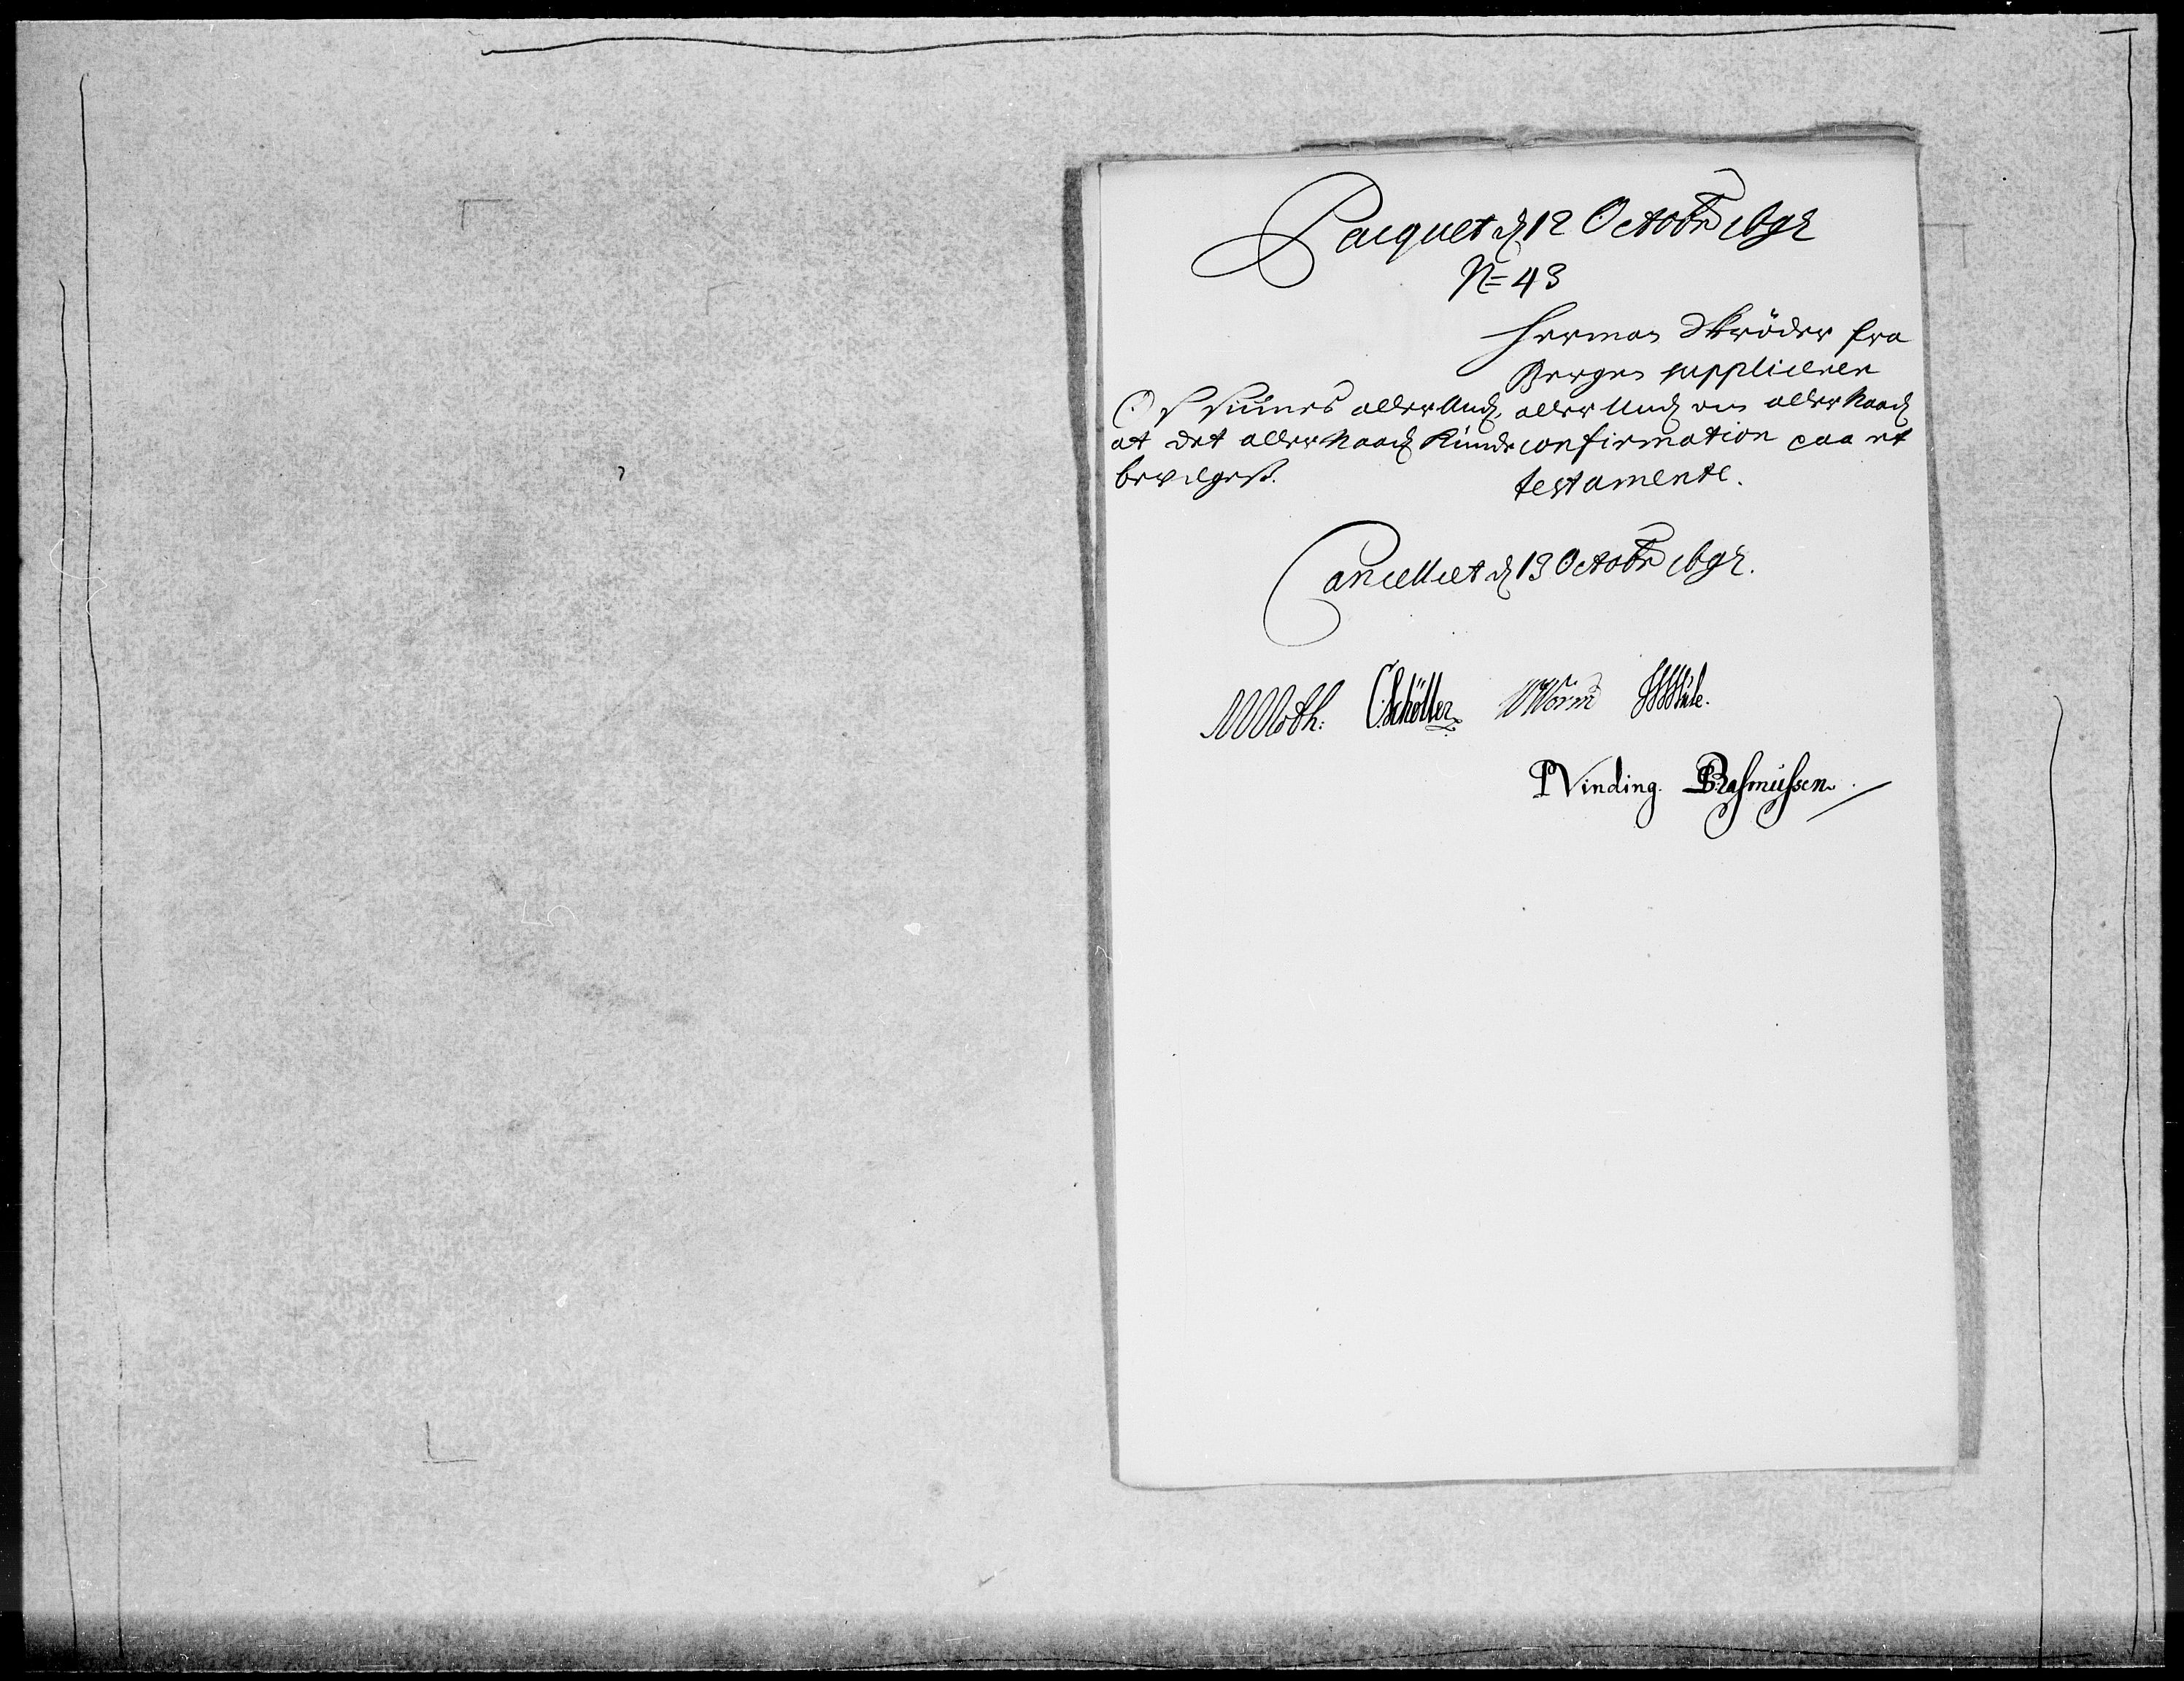 Pacquet d 12 Octobr 1692
N= 43
Herman Skröder fra
Bergen supplicerer
allerUnd om allerNaad
confirmation paa et
testamente.
Os siunes allerUnd,
at det allerNaad kunde
bevilgeß.
Cancelliet d 13 Octobr 1692.
MMoth: CSchöller WWorm
PVinding. Rasmussen.